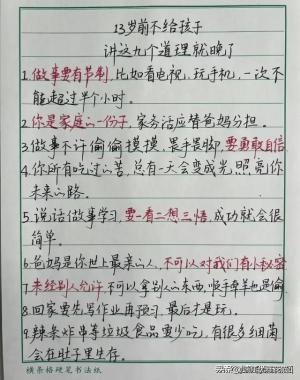 13岁前不给孩子
讲这九个道理就晚了
1.做事要有节制,比如看电视,玩手机,一次不
能超过半个小时。
2.你是家庭的一份子,家务活应替爸妈分担。
3.做事不许偷偷摸摸,畏手畏脚,要勇敢自信
4.你所有吃过的苦,总有一天会变成光照亮你
未来的路。
5.说话做事学习,要一看二想三悟,成功就会很
简单。
6.爸妈是你世上最亲的人,不可以对我们有小秘密
7.未经别人允许不可以拿别人的东西,顺手牵羊也是偷
8.回家要先写作业再预习,最后才是玩。
9.辣条炸串等垃圾食品要少吃,有很多细菌
会在肚子里生存。
横条格硬笔书法纸